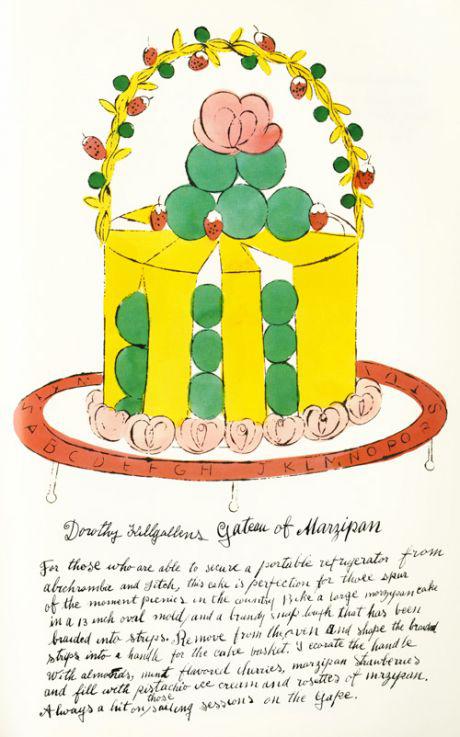 S T U V W
A B C D E F G H I J K L M N O P Q R S
Dorothy Killgallens Gateau of Marzipan
For those who are able to secure a portable refrigerator from
abrchrombie and fitch, this cake is perfection for those spur
of the moment picnics in the country Bake a large marzypan cake
in a 13 inch oval mold, and a brandy snap dough that has been
braided into strips. Remove from the oven and shape the braided
strips into a handle for the cake basket. Decorate the handle
with almonds, mint flavored cherries, marzipan strawberries
and fill with pistachio ice cream and rosettes of mrzipan.
Always a hit on those sailing sessions on the Gape.